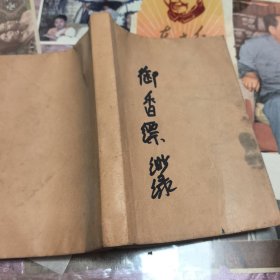 御香缥缈录